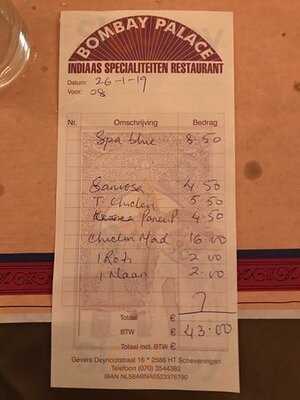 BOMBAY PALACE
INDIAAS SPECIALITEITEN RESTAURANT
Datum: 26-1-19
Voor: 08
Nr. Omschrijving Bedrag
Spa blue 8.50
Samosa 4.50
T. Chicken 5.50
Paneer P. 4.50
Chicken Mad 16.00
1 Roti 2.00
1 Naan 2.00
Totaal €
BTW €
Totaal incl. BTW € 43.00
Gevers Deynootstraat 16 * 2586 HT Scheveningen
Telefoon (070) 3544392